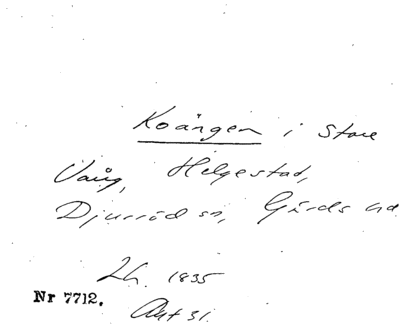 Koängen i Store
Vång, Helgestad,
Djurröd sn, Gärds hd
Lh. 1835
Nr 7712.
Akt 31.